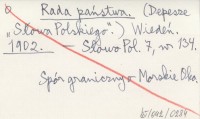 Rada państwa. (Depesze
"Słowa Polskiego".) Wiedeń.
1902. — Słowo Pol. 7, nr 134.
Spór graniczny o Morskie Oko.